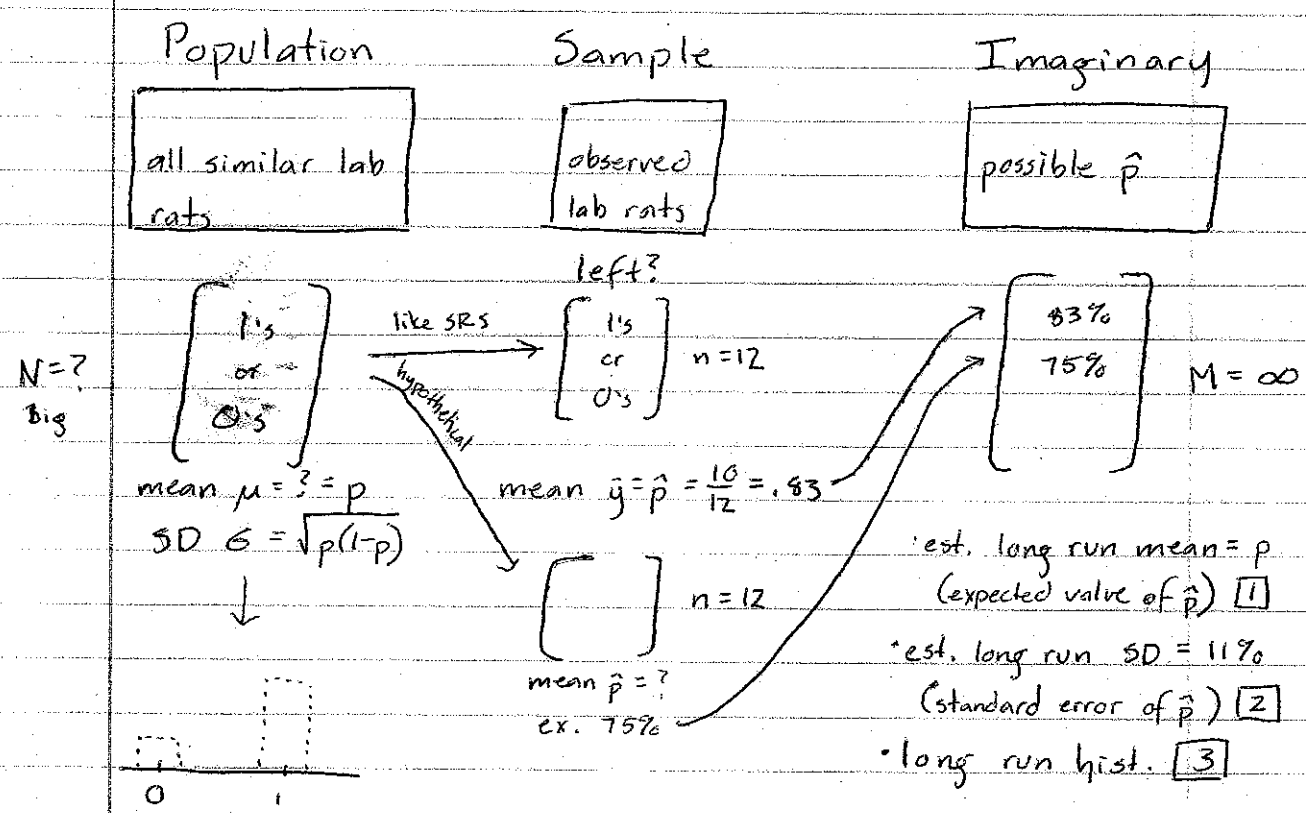 Population
Sample
Imaginary
all similar lab
rats
observed
lab rats
possible p̂
left?
1's
or
0's
N=?
Big
like SRS
hypothetical
1's
or
0's
n=12
83%
75%
M = ∞
mean μ = ? = p
SD σ = √p(1-p)
mean ȳ = p̂ = 10/12 = .83
n = 12
mean p̂ = ?
ex. 75%
· est. long run mean = p
(expected value of p̂) 1
· est. long run SD = 11%
(standard error of p̂) 2
· long run hist. 3
0
1